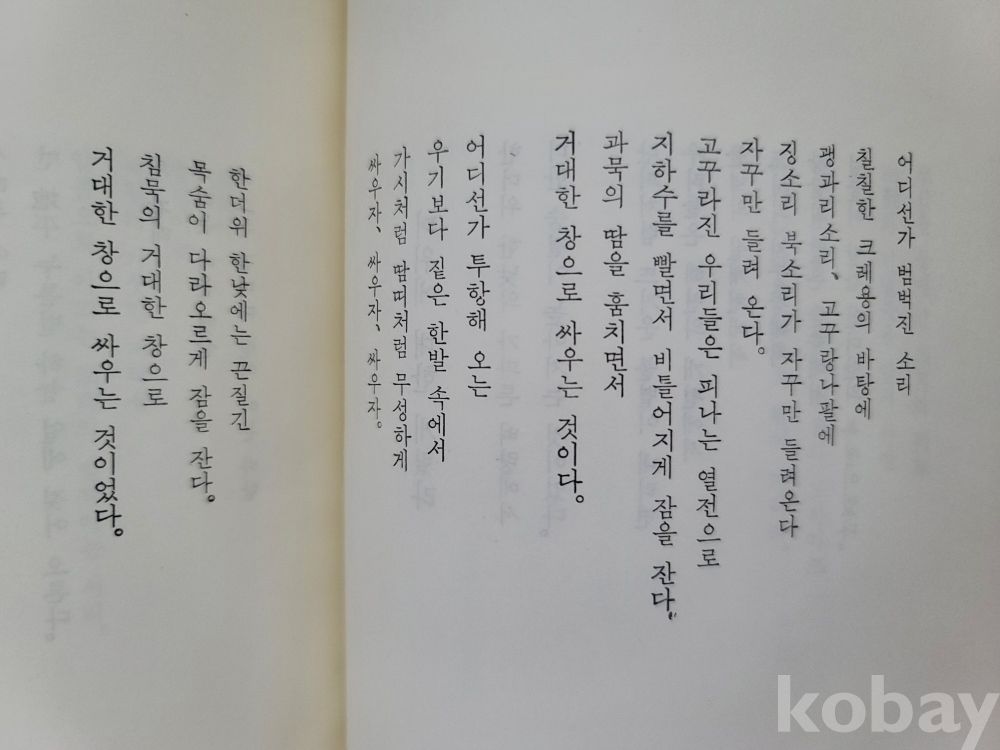 어디선가 범벅진 소리
칠칠한 크레용의 바탕에
괭과리소리、고꾸랑나팔에
징소리 북소리가 자꾸만 들려온다
자꾸만 들려 온다。
고꾸라진 우리들은 피나는 열전으로
지하수를 빨면서 비틀어지게 잠을 잔다。
과묵의 땀을 훔치면서
거대한 창으로 싸우는 것이다。
어디선가 투항해 오는
우기보다 짙은 한발 속에서
가시처럼 땀띠처럼 무성하게
싸우자、싸우자、싸우자。
한더위 한낮에는 끈질긴
목숨이 다라오르게 잠을 잔다。
침묵의 거대한 창으로
거대한 창으로 싸우는 것이었다。
kobay